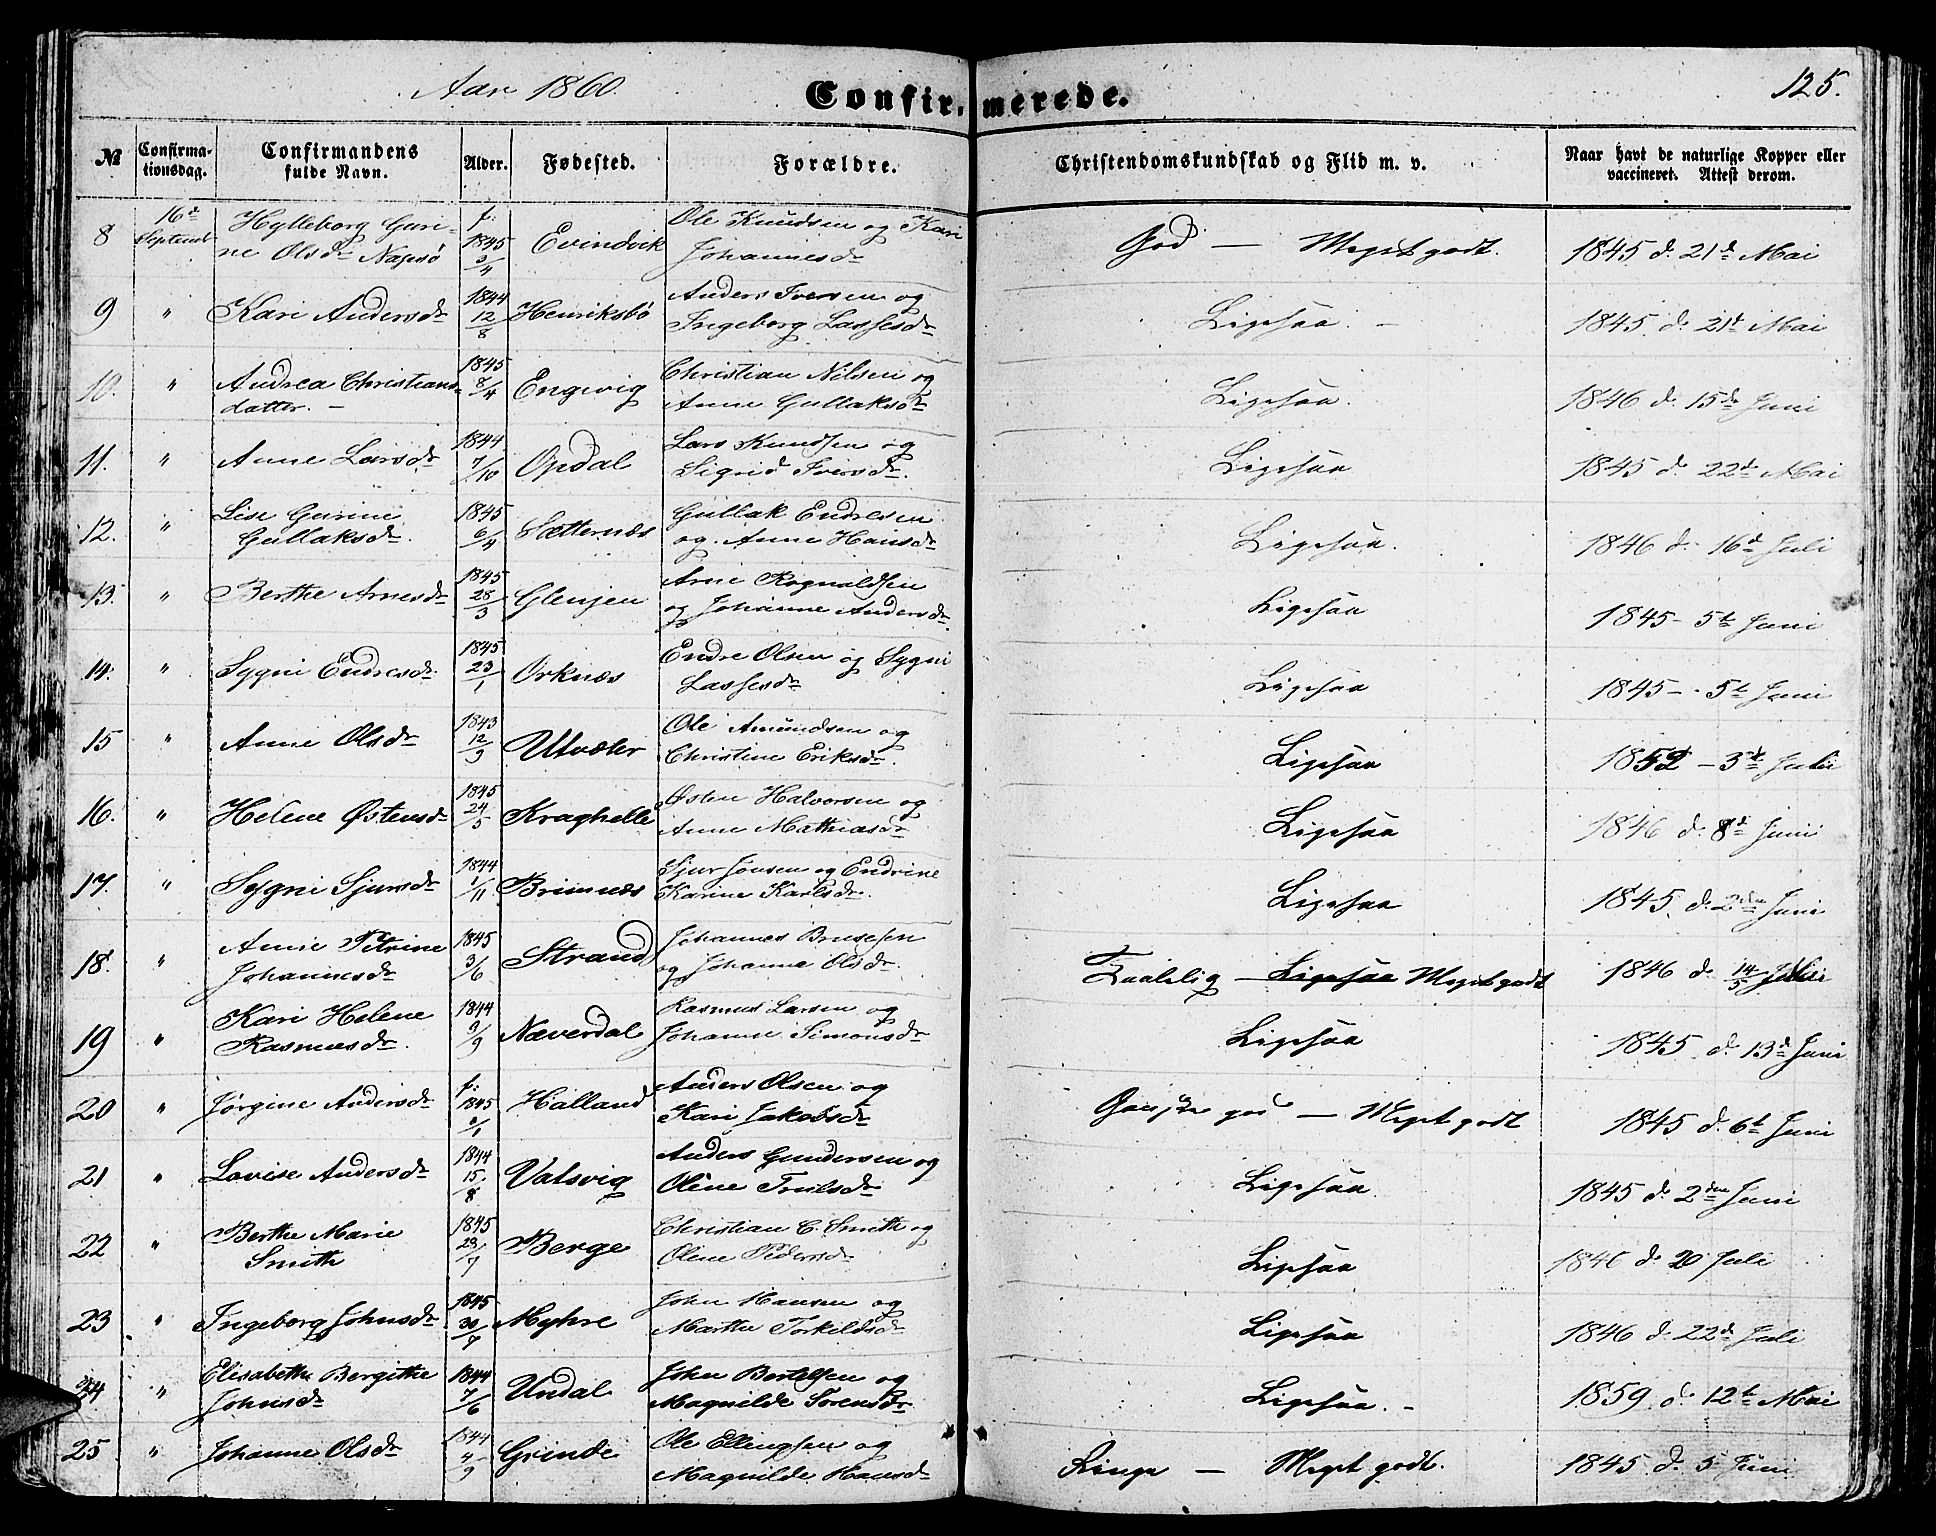 Aar 1860.
Confirmerede.
125.
№ Confirmationsdag. Confirmandens fulde Navn. Alder. Fødested. Forældre. Christendomskundskab og Flid m. v. Naar havt de naturlige Kopper eller vaccineret. Attest derom.
8 16d Septemb Hylleborg Gurine Olsdr f: 1845 3/4 Evindvik Ole Knudsen og Kari Johannesdr God — Meget godt. 1845 d. 21d Mai
9 " Kari Andersdr 1844 12/8 Henriksbø Anders Iversen og Ingeborg Lassesdr Ligesaa. – 1845 d. 21d Mai
10. " Andrea Christiansdatter. – 1845 8/4 Engevig Christian Nilsen og Anne Gullaksdr Ligesaa. 1846 d. 15de Juni
11. " Anne Larsdr 1844 7/10 Opdal Lars Knudsen og Sigrid Iversdr. Ligesaa 1845 d. 22d Mai
12. " Lise Gurine Gullaksdr. 1845 6/4 Sætternæs Gullak Endresen og Anne Hansdr Ligesaa. 1846 d. 16d Juli
13. " Berthe Arnesdr 1845 28/3 Glenjen Arne Rognaldsen og Johanne Andersdr. Ligesaa 1845 – 5t Juni
14. " Sygni Endresdr. 1845 23/1 Orknæs Endre Olsen og Sygni Lassesdr Ligesaa 1845 – 5t Juni
15 " Anne Olsdr 1843 12/9 Utvæter Ole Amundsen og Christine Eriksdr. Ligesaa 1852 – 3d Juli
16. " Helene Østensdr 1845 24/5 Kraghelle Østen Halvorsen og Anne Mathiasdr Ligesaa 1846 d. 8d Juni
17. " Sygni Sjursdr 1844 1/11 Brimnæs Sjur Jonsen og Endrine Karine Karlsdr. Ligesaa 1845 d. 2den Juni
18. " Anne Petrine Johannesdr 1845 3/6 Strand Johannes Brusesen og Johanne Olsdr. Taalelig – Ligesaa Meget godt 1846 d. 14/5
19 " Kari Helene Rasmusdr. 1844 9/9 Næverdal Rasmus Larsen og Johanne Simonsdr Ligesaa 1845 d. 13d Juni
20 " Jørgine Andersdr f: 1845 3/1 Halland Anders Olsen og Kari Jakobsdr Ganske god – Meget godt 1845 d. 6t Juni
21 " Lovise Andersdr 1844 15/8 Vatsvig Anders Gundersen og Oline Trulsdr Ligesaa. 1845 d. 2den Juni
22 " Berthe Marie Smith 1845 23/7 Berge Christian C. Smith og Oline Pedersdr Ligesaa 1846 d. 20 Juli
23 " Ingeborg Johnsdr 1845 30/7 Myhre John Hansen og Marthe Torkildsdr Ligesaa 1846 d. 22d Juli
24 " Elisabethe Bergithe Johnsdr 1844 7/6 Undal John Bertelsen og Magnilde Sorensdr Ligesaa. – 1859 d. 12t Mai
25 " Johanne Olsdr 1844 4/9 Grinde Ole Ellingsen og Magnilde Hansdr Ringe – Meget godt. 1845 d. 5 Juni